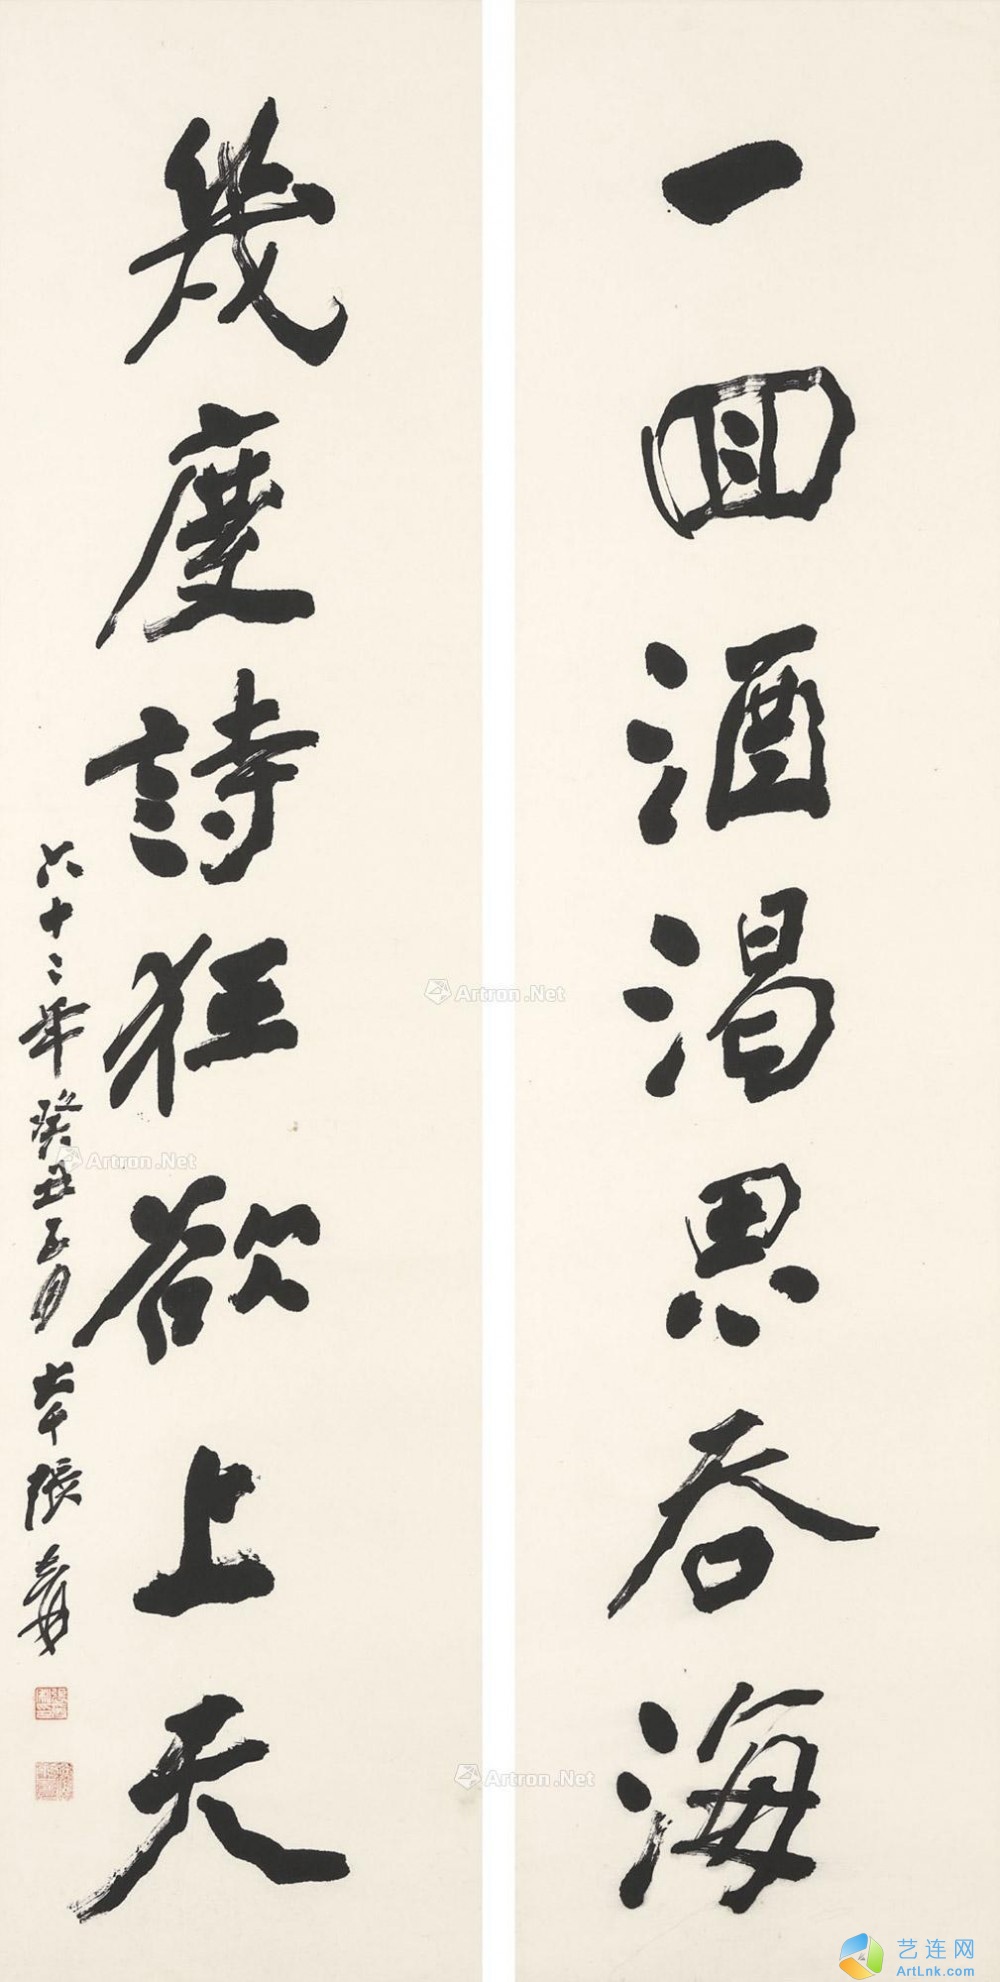 一回酒渴思吞海
幾度詩狂欲上天
六十二年癸丑子月大千張爰
Artron.Net
Artron.Net
Artron.Net
艺连网
ArtLnk.com